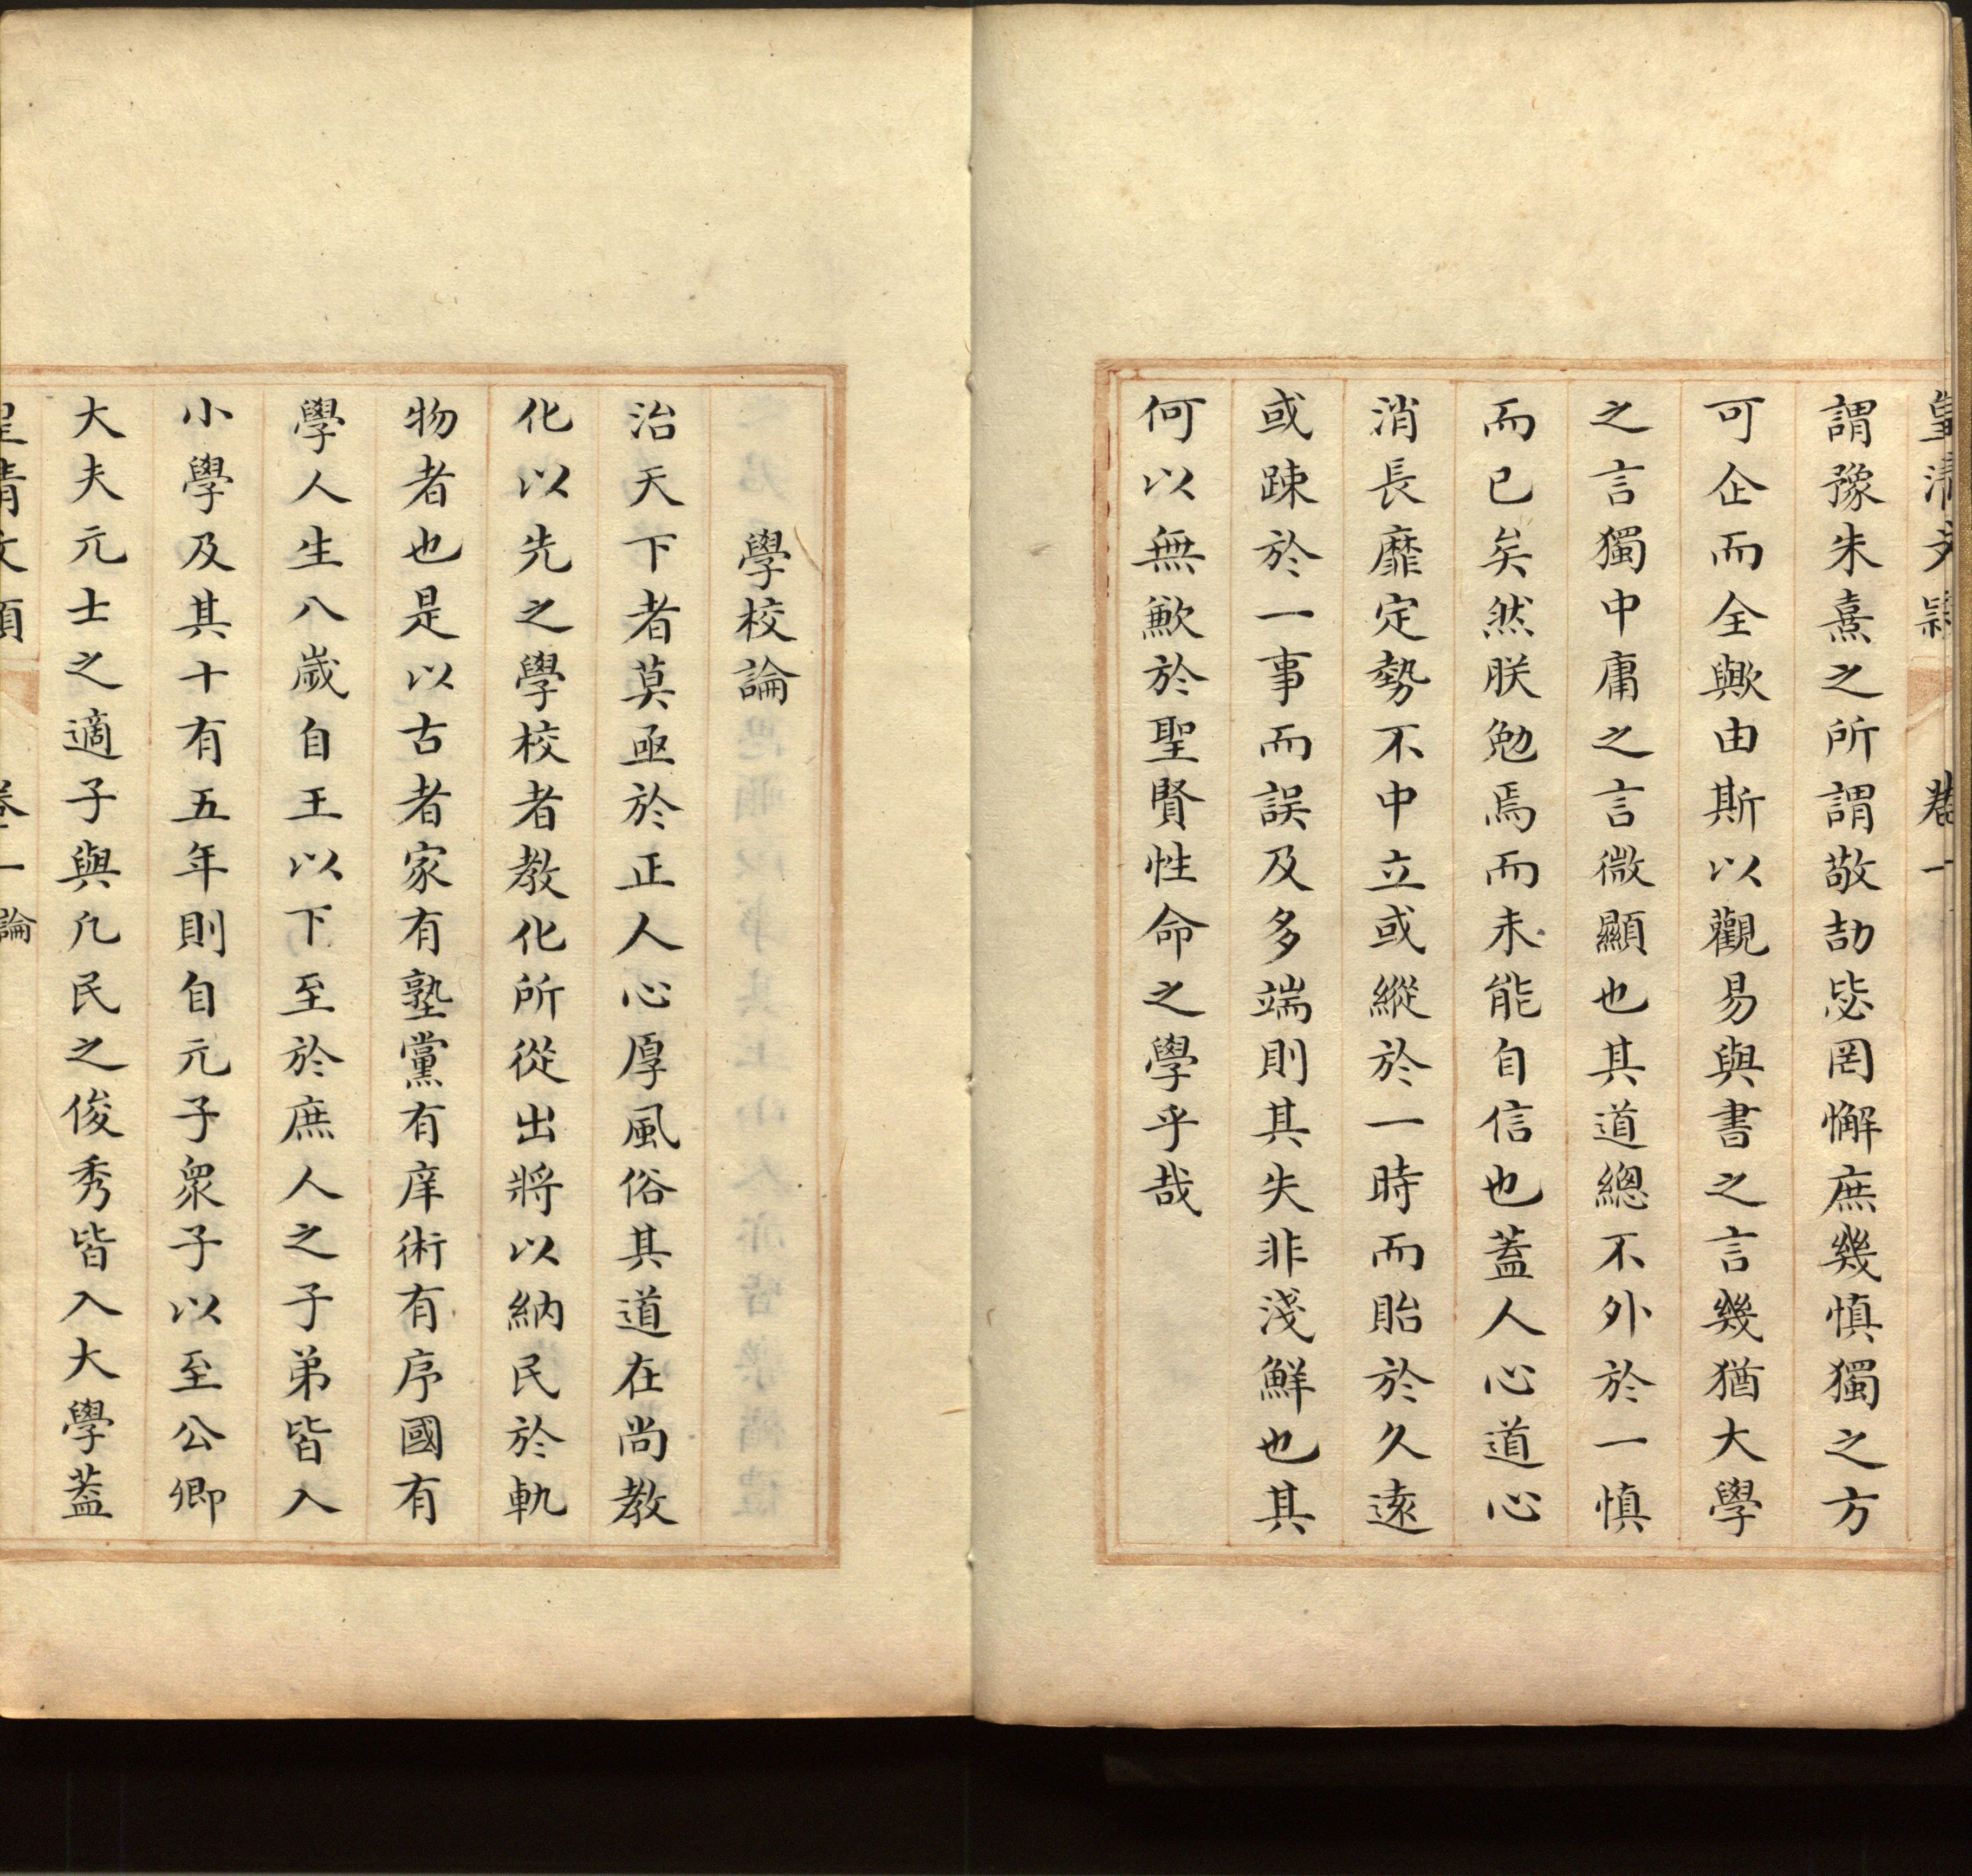 皇清文穎 卷一
謂豫朱熹之所謂敬劼毖罔懈庶幾慎獨之方
可企而全歟由斯以觀易與書之言幾猶大學
之言獨中庸之言微顯也其道總不外於一慎
而已矣然朕勉焉而未能自信也蓋人心道心
消長靡定勢不中立或縱於一時而貽於久遠
或踈於一事而誤及多端則其失非淺鮮也其
何以無歉於聖賢性命之學乎哉
學校論
治天下者莫亟於正人心厚風俗其道在尚教
化以先之學校者教化所從出將以納民於軌
物者也是以古者家有塾黨有庠術有序國有
學人生八歲自王以下至於庶人之子弟皆入
小學及其十有五年則自元子衆子以至公卿
大夫元士之適子與凡民之俊秀皆入大學蓋
皇清文穎 卷一論